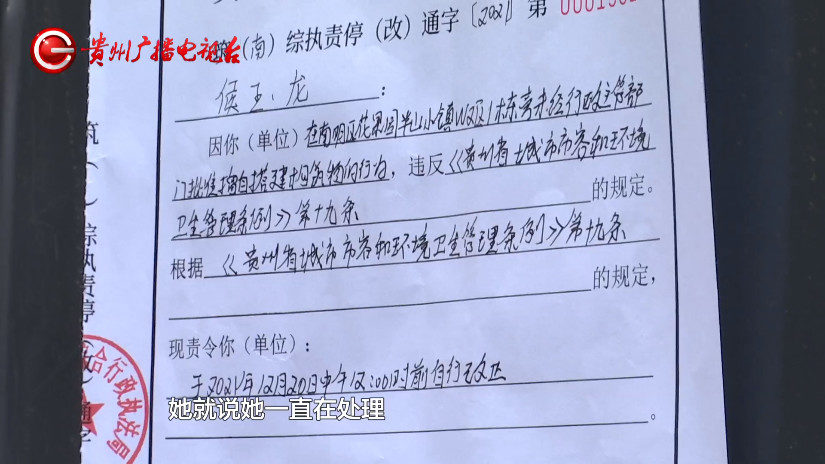 贵州广播电视台
(南)综执责停(改)通字〔2021〕第
侯玉龙:
因你(单位)在南明区花果园半山小镇W2区1栋旁未经行政主管部
门批准擅自搭建构筑物的行为,违反《贵州省城市市容和环境
卫生管理条例》第十九条的规定。
根据《贵州省城市市容和环境卫生管理条例》第十九条
的规定,
现责令你(单位):
于2021年12月20日中午12:00时前自行改正
。
她就说她一直在处理
筑()综执责停(改)通字
合行政执法局